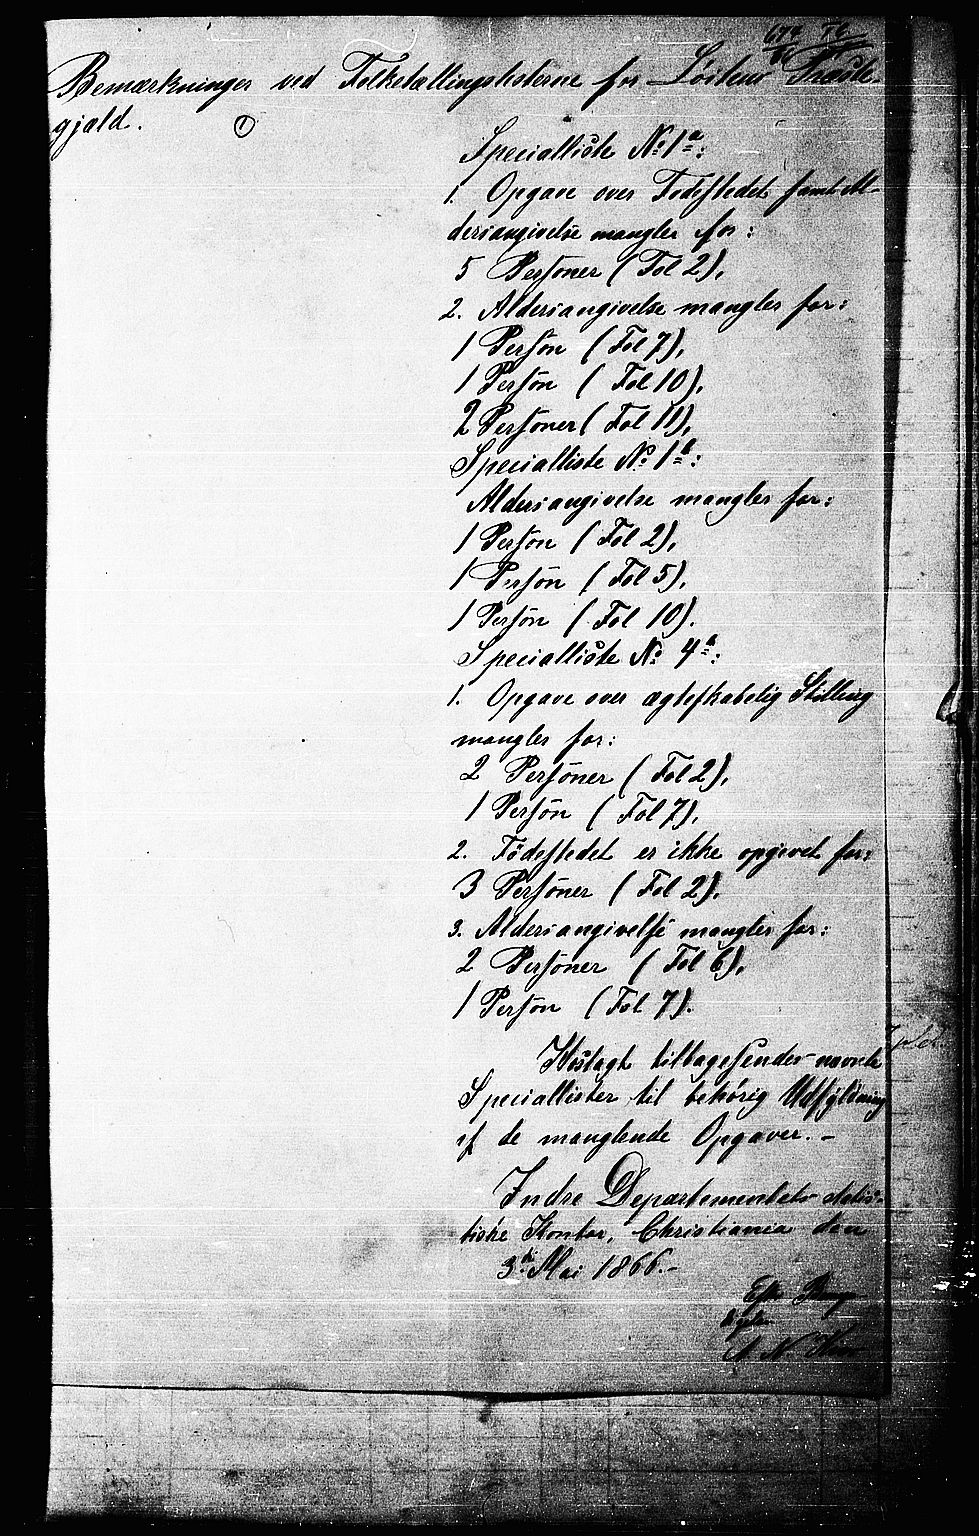 Bemærkninger ved Folketællingslisterne for Løitens Præste-
gjæld.
1
Specialliste No 1a:
1. Opgave over Fødestedet samt Al-
dersangivelse mangler for:
5 Personer (Fol 2),
2. Aldersangivelse mangler for:
1 Person (Fol 7),
1 Person (Fol 10),
2 Personer (Fol 11),
Specialliste No 1b:
Aldersangivelse mangler for:
1 Person (Fol 2),
1 Person (Fol 5),
1 Person (Fol 10).
Specialliste No 4a:
1. Opgave over ægteskabelig Stilling
mangler for:
2 Personer (Fol 2),
1 Person (Fol 7),
2. Fødestedet er ikke opgivet for:
3 Personer (Fol 2),
3. Aldersangivelse mangler for:
2 Personer (Fol 6),
1 Person (Fol 7).
Hoslagt tilbagesendes nævnte
Speciallister til behørig Udfyldning
af de manglende Opgaver. -
Indre Departementets statis-
tiske Kontor, Christiania den
3die Mai 1866. -
Efter
A N